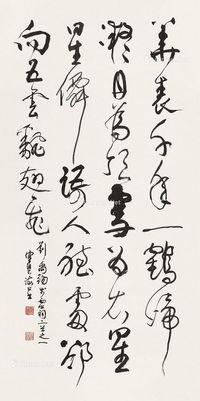 華表千年一鶴歸
凝丹為頂雪為衣星
星僊語人聽盡卻
向五雲翻翅飛
劉禹錫步虛詞